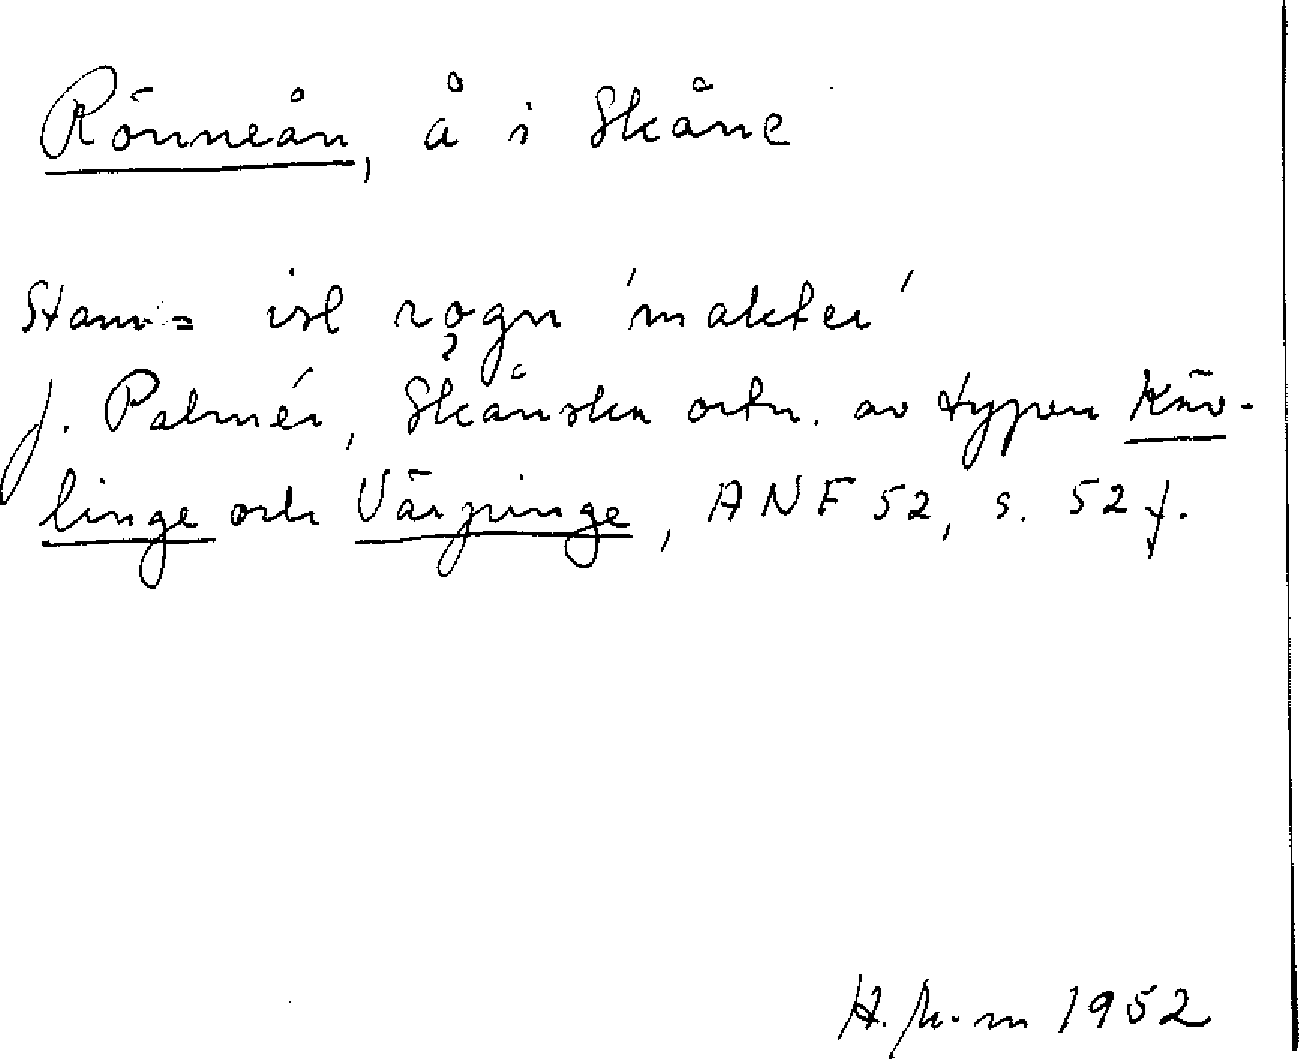 Rönneån, å i Skåne
Stam = isl rǫgn 'makter'
J. Palmér, Skånska ortn. av typen Käv-
linge och Värpinge, ANF 52, s. 52 f.
1952